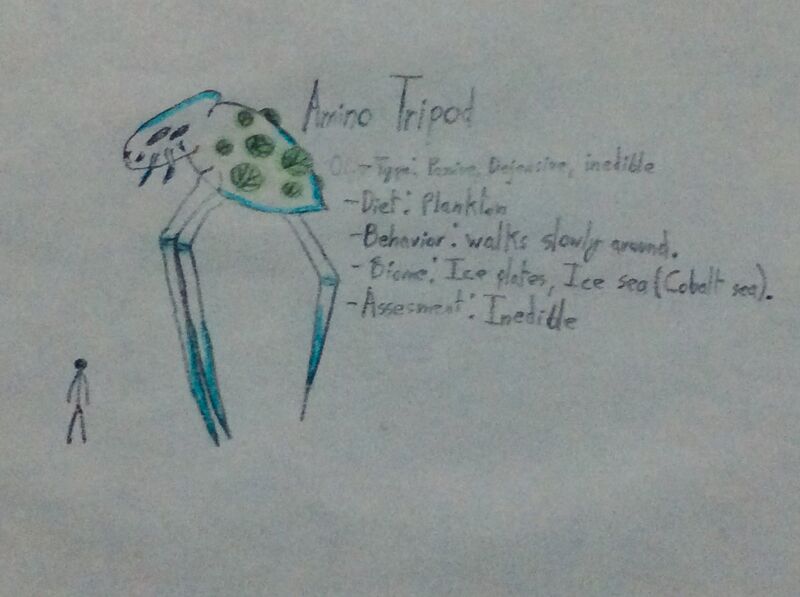 Amino Tripod
-Type: Passive, Defensive, inedible
-Diet: Plankton
-Behavior: walks slowly around.
-Biome: Ice plates, Ice sea (Cobalt sea).
-Assesment: Inedible